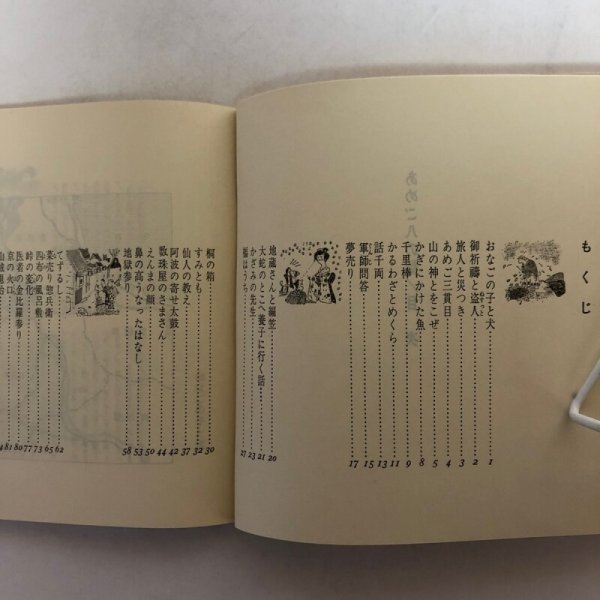 もくじ
おなごの子と犬……1
御祈禱と盗人……2
旅人と災つき……3
あめご三貫目……4
山の神とをこぜ……5
かぎにかけた魚……8
千里棒……9
かるわざとめくら……11
話千両……13
軍師問答……15
夢売り……17
地蔵さんと編笠……20
大蛇のとこへ養子に行く話……21
かざみの先生……23
福はうち……27
桐の箱……30
すみとも……32
仙人の教え……37
阿波の寄せ太鼓……42
数珠屋のさまさん……44
えんまの顔……50
鼻の高うなったはなし……53
地獄参り……58
てずるし……62
薬売り惣兵衛……65
四布の風呂敷……73
峠の変化……77
医者の金比羅参り……80
京の火口……81